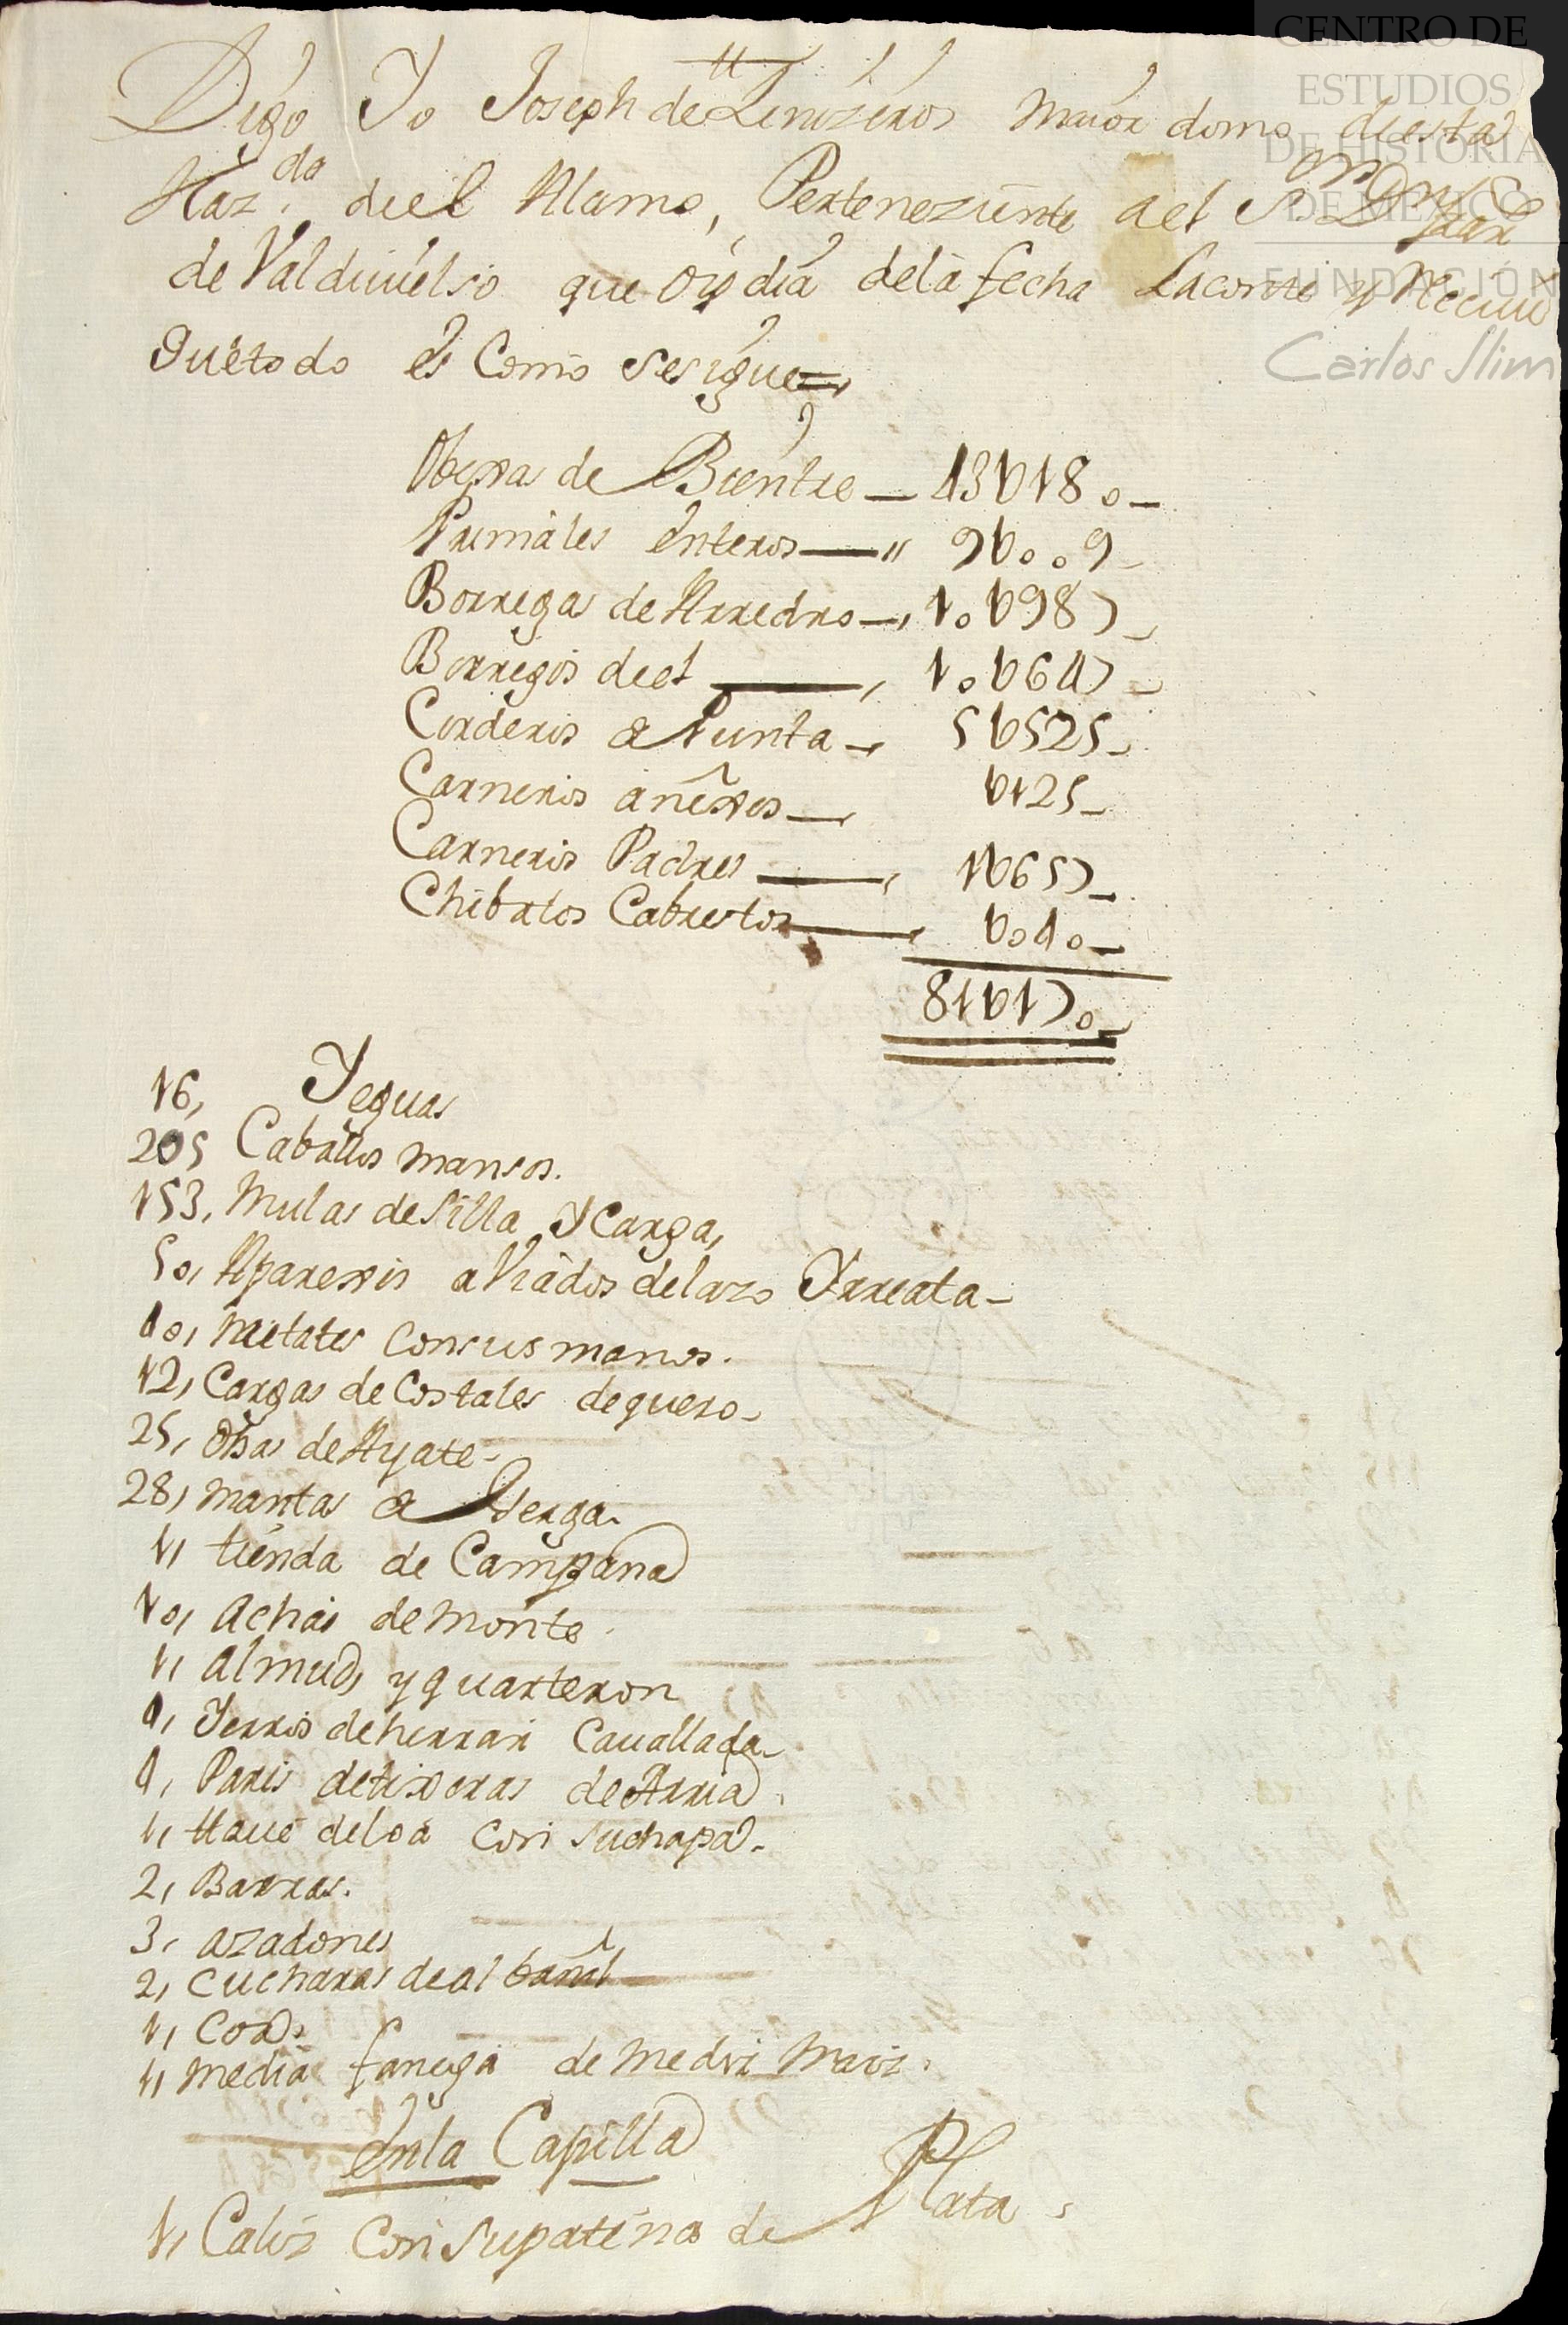 Digo Yo Joseph de Zenizeros maior domo diesta
Haz.da diel Alamo, Perteneziente del S.or D.n Juan
de Valdiuielso que oy dia dela fecha
quétodo és Como sesigue=,
Obexas de Bientre — 43U180 —
Primàles énteros — " 9U009 —
Borregas de Arredro —, 10U987 —
Borregos deel —, 10U647 —
Corderos a Punta —, 5U525 —
Carneros anéxos — U125 —
Carneros Padres —, 1U657 —
Chibatos Cabrestos —, U040 —
81U170 —
16, Yeguas
205 Caballos mansos.
153, Mulas desilla Y Carga,
50, Aparexos aViàdos delazo Yrreata —
40, metates Consus manos.
12, Cargas de Costales dequero —
25, Obas de Ayate —
28, mantas a Gerga.
1, tienda de Campana
10, achas demonte.
1, almud, y quarteron
4, Yerros deherrar Cauallada —
4, Pares detixeras de Arria.
1, llaue deloa Con suchapa —
2, Barras.
3, azadones
2, Cucharas deal bañil —
1, Coa,
1, media fanega de medir maiz.
énla Capilla
1, Caliz Con supaténa de Plata
CENTRO DE
ESTUDIOS
DE HISTORIA
DE MÉXICO
FUNDACIÓN
Carlos Slim